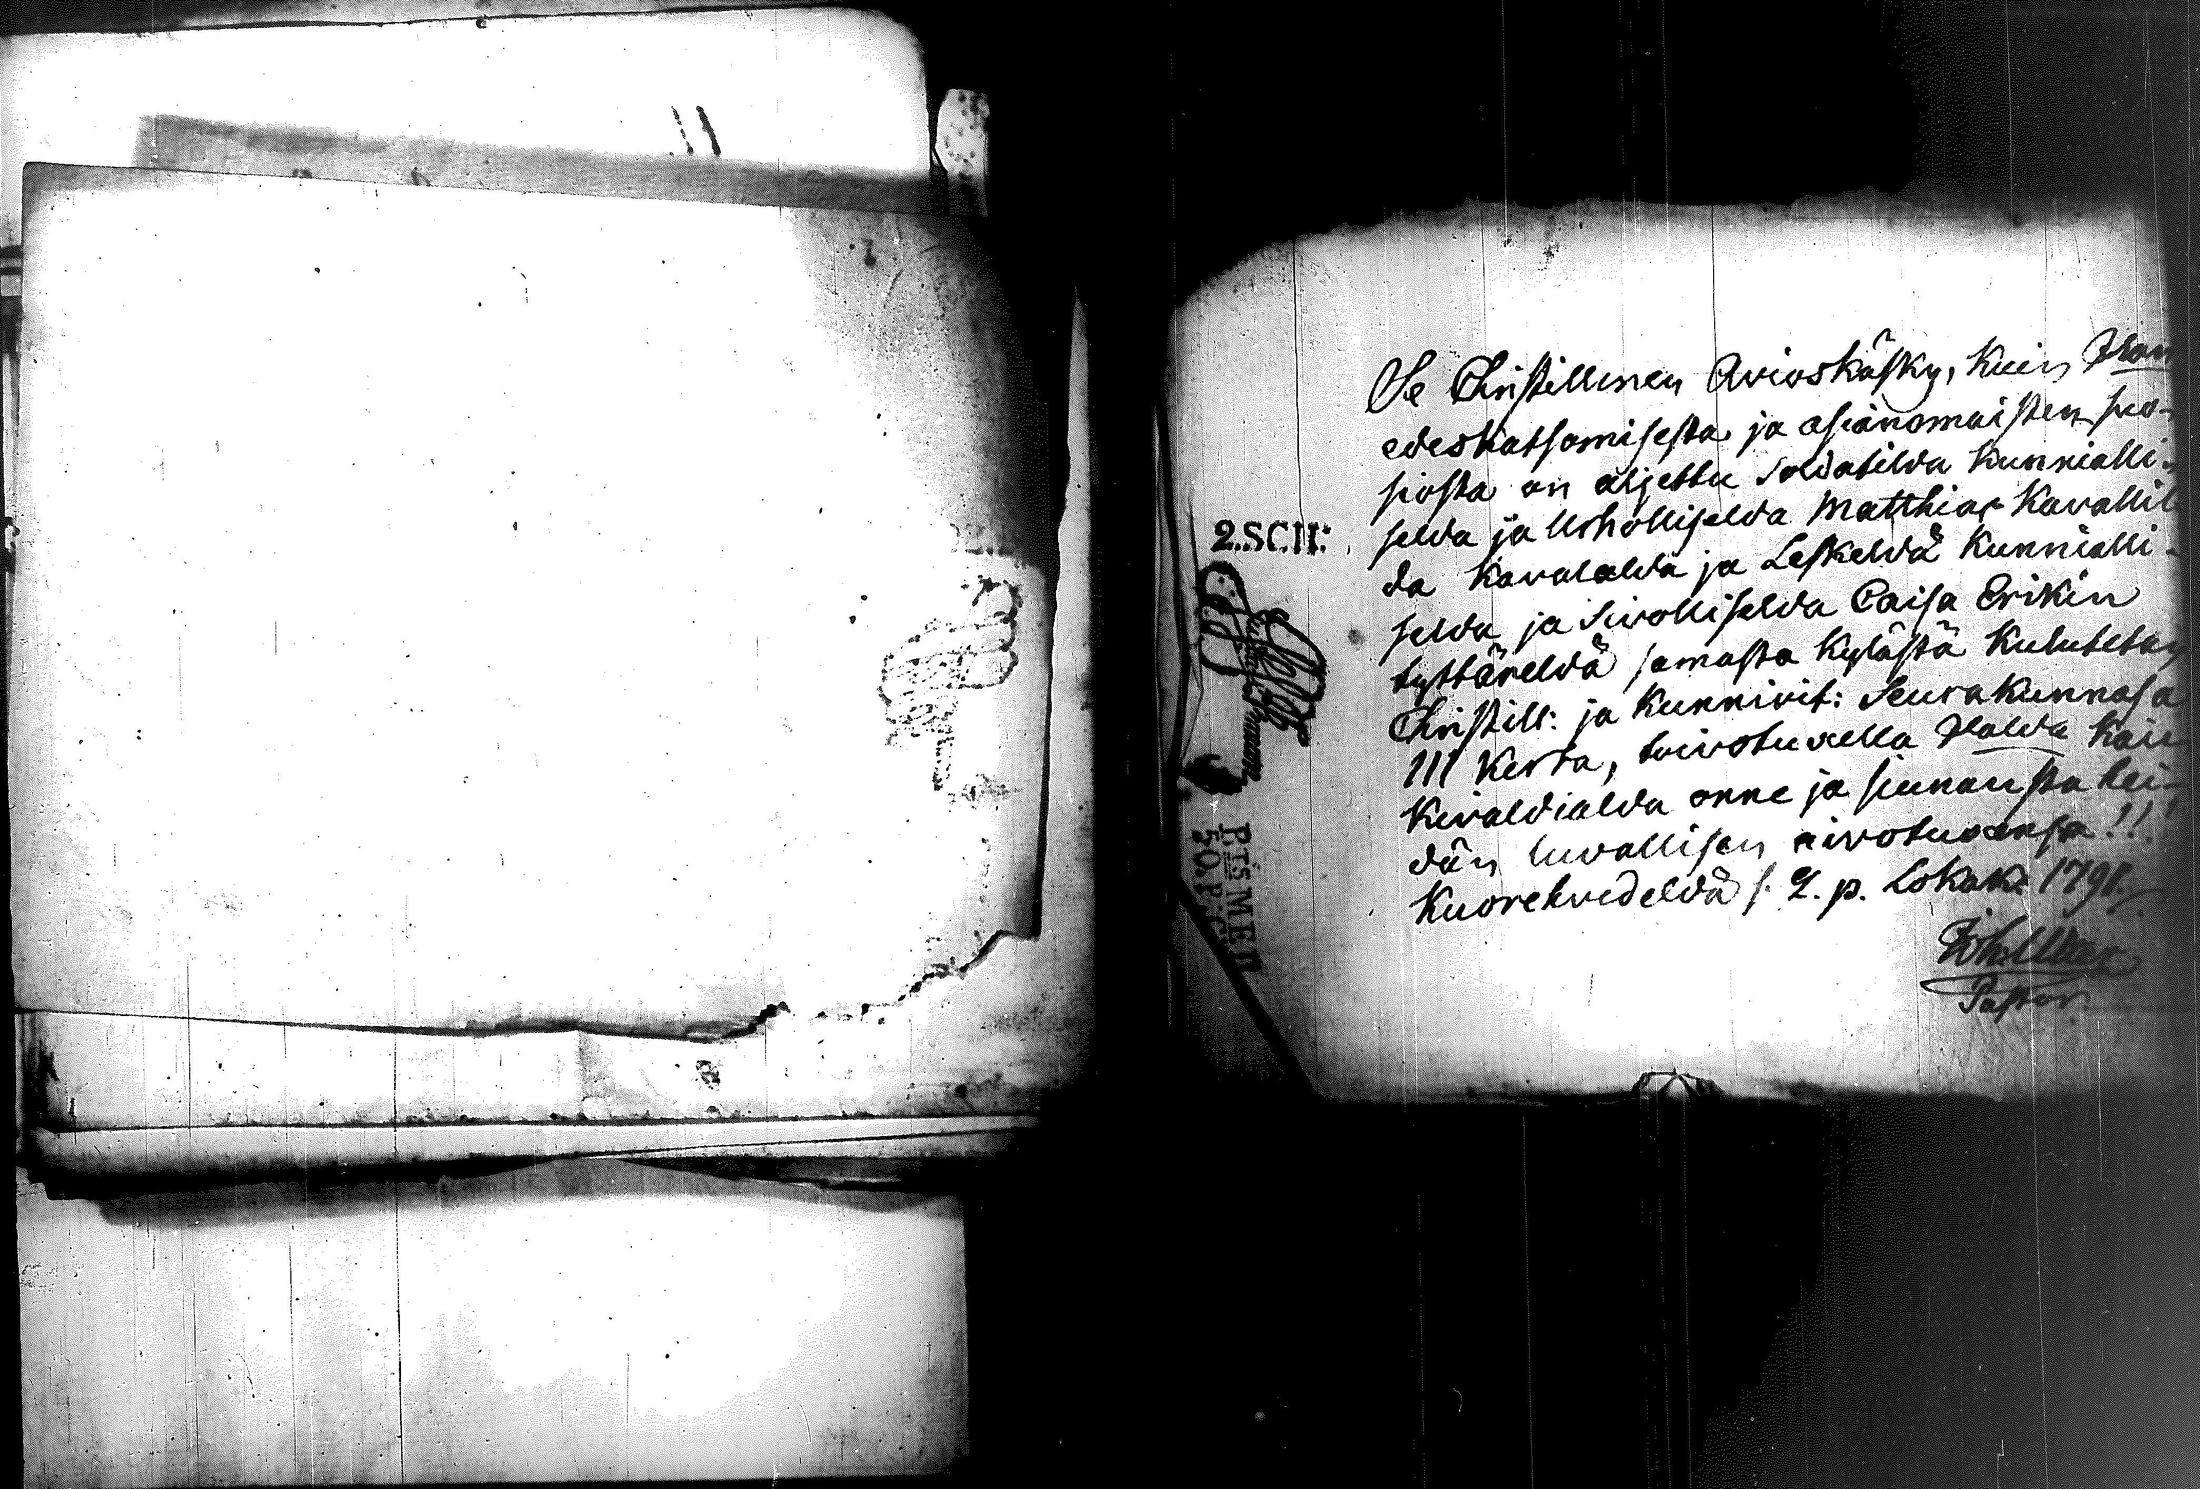 Se Christillinen Avioskäsky, Kuin
edeskatsomisesta ja asianomaisten suo-
siosta on aljettu Soldatilda Kunnialli-
selda ja Urholliselda Matthias Kavallil
da Kavalalda ja Leskeldä Kunnialli-
selda ja Sivolliselda Caisa Erikin
tyttäreldä samasta Kylästä Kulutetan
Christill: ja Kunnivit: Seurakunnasa
III Kerta, toivotuxella Halda Kaik
Kivaldialda onne ja siunausta hei-
dän luvallisen aivotuxensa!!!
Kuorehvedeldä s. 2. p. Lokak. 1791.
Pastor
2.SCH:
PTSMEN
50.P.C.